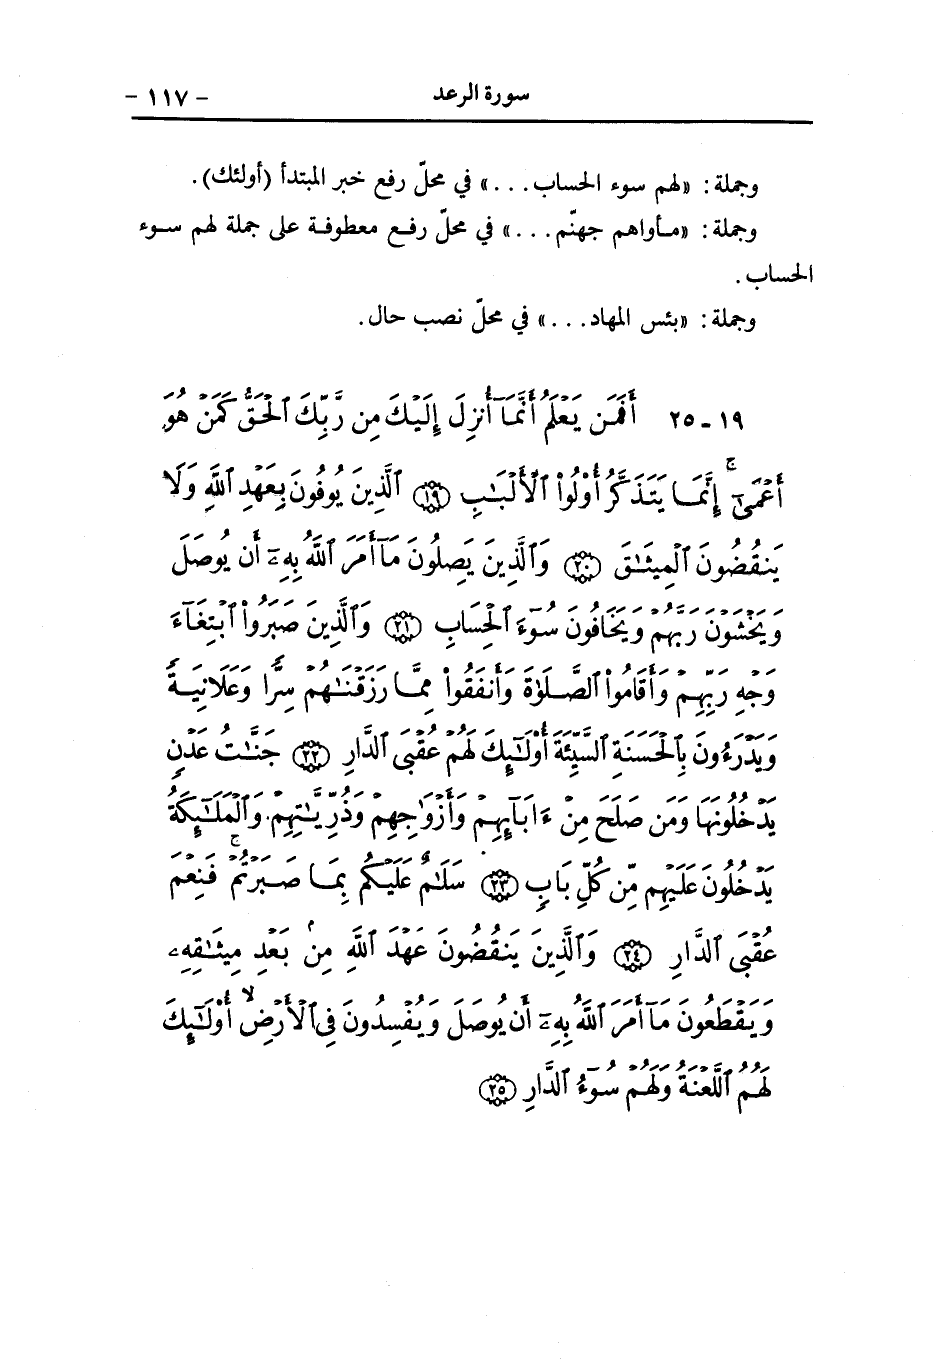 سورة الرعد - ١١٧ -
وجملة: «لهم سوء الحساب...» في محلّ رفع خبر المبتدأ (أولئك).
وجملة: «مأواهم جهنّم...» في محلّ رفع معطوفة على جملة لهم سوء
الحساب.
وجملة: «بئس المهاد...» في محلّ نصب حال.
١٩ - ٢٥ أَفَمَن يَعْلَمُ أَنَّمَآ أُنزِلَ إِلَيْكَ مِن رَّبِّكَ ٱلْحَقُّ كَمَنْ هُوَ
أَعْمَىٰٓ ۚ إِنَّمَا يَتَذَكَّرُ أُو۟لُوا۟ ٱلْأَلْبَٰبِ ﴿١٩﴾ ٱلَّذِينَ يُوفُونَ بِعَهْدِ ٱللَّهِ وَلَا
يَنقُضُونَ ٱلْمِيثَٰقَ ﴿٢٠﴾ وَٱلَّذِينَ يَصِلُونَ مَآ أَمَرَ ٱللَّهُ بِهِۦٓ أَن يُوصَلَ
وَيَخْشَوْنَ رَبَّهُمْ وَيَخَافُونَ سُوٓءَ ٱلْحِسَابِ ﴿٢١﴾ وَٱلَّذِينَ صَبَرُوا۟ ٱبْتِغَآءَ
وَجْهِ رَبِّهِمْ وَأَقَامُوا۟ ٱلصَّلَوٰةَ وَأَنفَقُوا۟ مِمَّا رَزَقْنَٰهُمْ سِرًّا وَعَلَانِيَةً
وَيَدْرَءُونَ بِٱلْحَسَنَةِ ٱلسَّيِّئَةَ أُو۟لَٰٓئِكَ لَهُمْ عُقْبَى ٱلدَّارِ ﴿٢٢﴾ جَنَّٰتُ عَدْنٍ
يَدْخُلُونَهَا وَمَن صَلَحَ مِنْ ءَابَآئِهِمْ وَأَزْوَٰجِهِمْ وَذُرِّيَّٰتِهِمْ وَٱلْمَلَٰٓئِكَةُ
يَدْخُلُونَ عَلَيْهِم مِّن كُلِّ بَابٍ ﴿٢٣﴾ سَلَٰمٌ عَلَيْكُم بِمَا صَبَرْتُمْ ۚ فَنِعْمَ
عُقْبَى ٱلدَّارِ ﴿٢٤﴾ وَٱلَّذِينَ يَنقُضُونَ عَهْدَ ٱللَّهِ مِنۢ بَعْدِ مِيثَٰقِهِۦ
وَيَقْطَعُونَ مَآ أَمَرَ ٱللَّهُ بِهِۦٓ أَن يُوصَلَ وَيُفْسِدُونَ فِى ٱلْأَرْضِ ۙ أُو۟لَٰٓئِكَ
لَهُمُ ٱللَّعْنَةُ وَلَهُمْ سُوٓءُ ٱلدَّارِ ﴿٢٥﴾